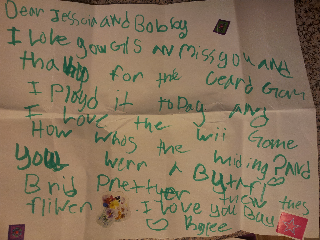 Dear Jessica and Bobby
I Love you Gis an miss you and
tha for the Ceard Gam
I Ployd it toDay and
I Love the wii Game
How whos the widing? and
you werr A Bytrfl
Brid Prettyer thes
fliwer I love you Bay